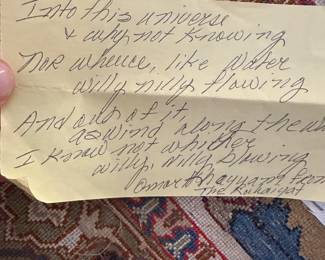 Into this universe
& why not knowing
Nor whence, like Water
willy nilly flowing
And out of it
as wind along the
I know not whither
willy, nilly blowing
Omar Khayyam from
The Rubaiyat